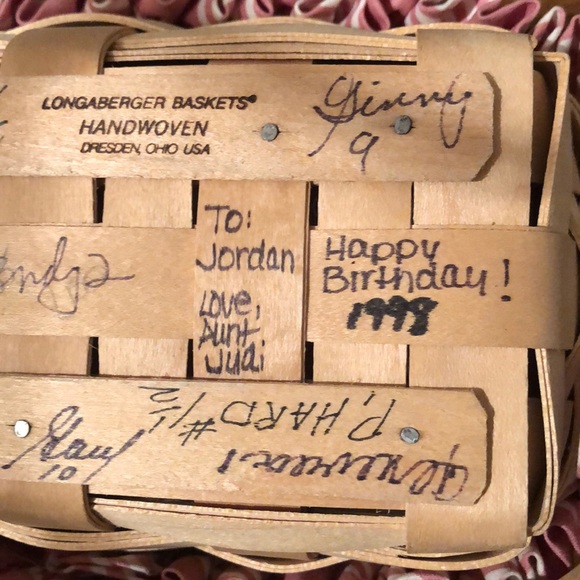 LONGABERGER BASKETS®
HANDWOVEN
DRESDEN, OHIO USA
Ginny
9
To:
Jordan
Love,
Aunt
Judi
Happy
Birthday!
1998
P. HARD #1/2
10